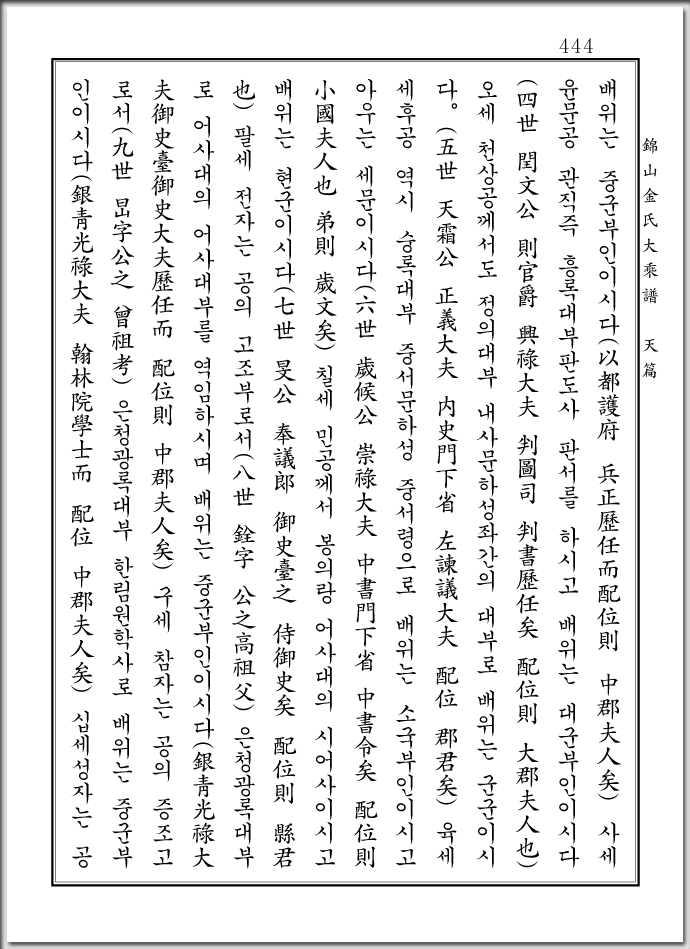 444
錦山金氏大乘譜 天篇
배위는 중군부인이시다(以都護府 兵正歷任而配位則 中郡夫人矣) 사세
윤문공 관직즉 흥록대부판도사 판서를 하시고 배위는 대군부인이시다
(四世 閏文公 則官爵 興祿大夫 判圖司 判書歷任矣 配位則 大郡夫人也)
오세 천상공께서도 정의대부 내사문하성좌간의 대부로 배위는 군군이시
다。(五世 天霜公 正義大夫 内史門下省 左諫議大夫 配位 郡君矣) 육세
세후공 역시 숭록대부 중서문하성 중서령으로 배위는 소국부인이시고
아우는 세문이시다(六世 歲候公 崇祿大夫 中書門下省 中書令矣 配位則
小國夫人也 弟則 歲文矣) 칠세 민공께서 봉의랑 어사대의 시어사이시고
배위는 현군이시다(七世 旻公 奉議郞 御史臺之 侍御史矣 配位則 縣君
也) 팔세 전자는 공의 고조부로서(八世 銓字 公之高祖父) 은청광록대부
로 어사대의 어사대부를 역임하시며 배위는 중군부인이시다(銀靑光祿大
夫御史臺御史大夫歷任而 配位則 中郡夫人矣) 구세 참자는 공의 증조고
로서(九世 旵字公之 曾祖考) 은청광록대부 한림원학사로 배위는 중군부
인이시다(銀靑光祿大夫 翰林院學士而 配位 中郡夫人矣) 십세성자는 공